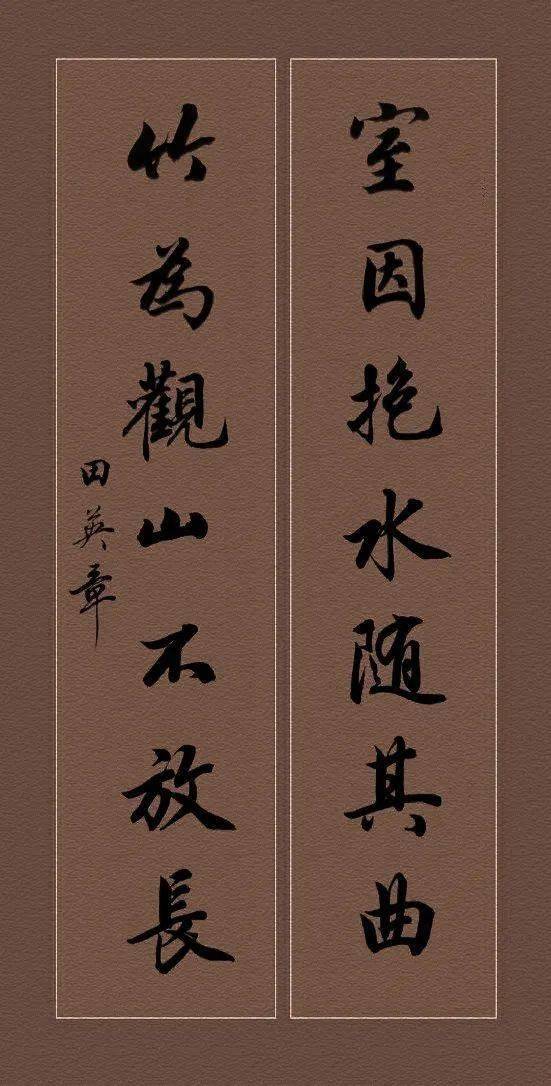 室因抱水随其曲
竹為觀山不放長
田英章